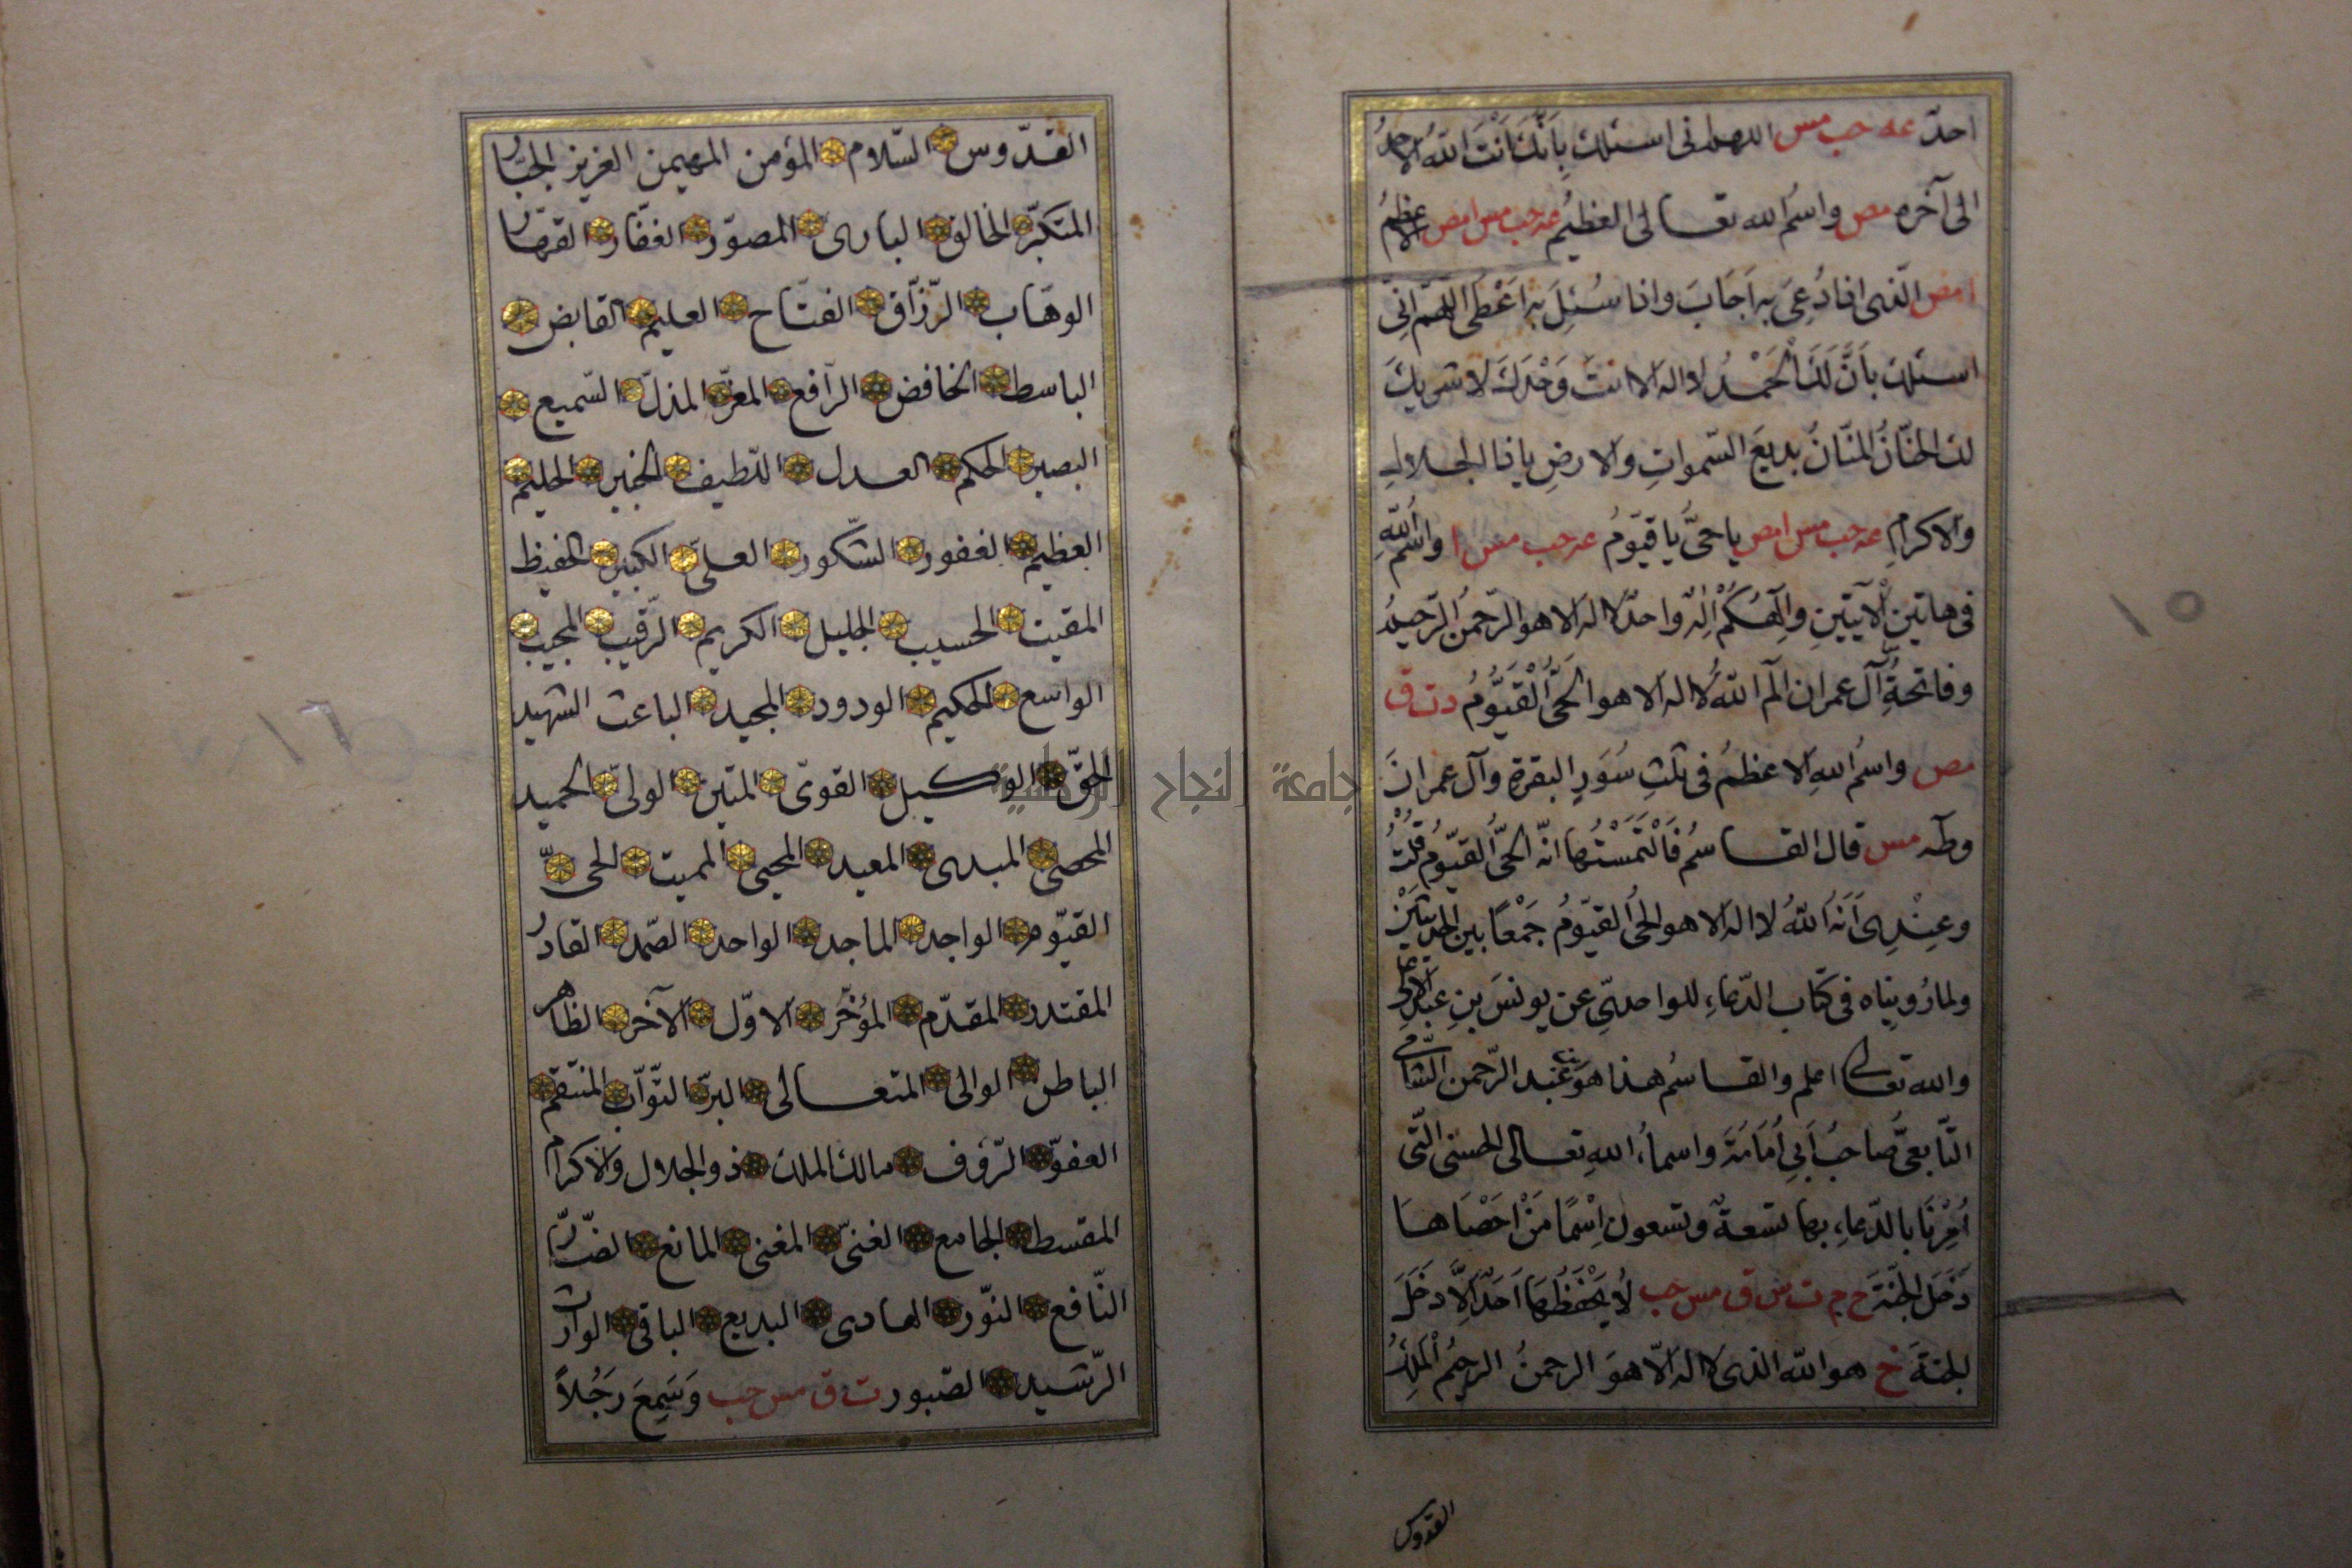 احدٌ عه حب مس اللهم انى اسئلك بِاَنَّكَ اَنْتَ اللهُ الاحدُ
الى آخره مص واسمُ الله تعالى العظيمُ عه حب مس امص الاعظمُ
امص الّذى اذا دُعِىَ به اَجَابَ واذا سُئِلَ به اَعْطى اللهمّ اِنّى
اسئلك بِاَنَّ لَكَ الْحَمْدُ لا اله الا انتَ وَحْدَكَ لا شريكَ
لك الحنّانُ المنّانُ بديعَ السّمواتِ والارضِ ياذا الجلالِ
والاكرامِ عه حب مس امص يا حىُّ يا قيّومُ عه حب مس ا واسْمُ اللهِ
فى هاتين الْآيتينِ وَاِلٓهُكُمْ اِلٰهٌ واحدٌ لا اله الا هو الرّحمنُ الرّحيمُ
وفاتحةُ آل عمران الٓم اللهُ لا اله الا هو الحَىُّ الْقَيُّومُ د ت ق
مص واسمُ اللهِ الاعظمُ فى ثلثِ سُوَرٍ البقرةِ وآل عمرانَ
وطٓه مس قال القاسمُ فَالْتَمَسْتُها انّه الحىُّ القيّومُ قُلْتُ
وعِنْدِى اَنّه اللهُ لا اله الا هو الحىُّ القيّومُ جَمْعًا بين الحديثَيْنِ
ولما رُوِيناه فى كتاب الدّعاءِ للواحدىّ عن يونسَ بنِ عبدِ الاعلى
والله تعالى اعلم والقاسمُ هذا هو بن عَبْد الرّحمن الشّامى
التّابعىُّ صاحبُ اَبِى اُمَامَةَ واسماءُ اللهِ تعالى الحسنى الّتى
اُمِرْنَا بالدّعاءِ بها تسعةٌ وتسعون اِسْمًا مَنْ اَحْصَاهَا
دَخَلَ الجنّةَ خ م ت س ق مس حب لا يَحْفَظُهَا اَحَدٌ اِلَّا دَخَلَ
الجنةَ خ هو الله الذى لا اله الّا هوَ الرحمنُ الرحيمُ الْمَلِكُ
القدوس
القدّوس السّلام المؤمن المهيمن العزيز الجبّار
المتكبّر الخالق البارى المصوّر الغفّار القهّار
الوهّاب الرّزّاق الفتّاح العليم القابض
الباسط الخافض الرّافع المعزّ المذلّ السّميع
البصير الحكم العدل اللّطيف الخبير الحليم
العظيم الغفور الشّكور العلىّ الكبير الحفيظ
المقيت الحسيب الجليل الكريم الرّقيب المجيب
الواسع الحكيم الودود المجيد الباعث الشهيد
الحقّ الوكيل القوىّ المتين الولىّ الحميد
المحصى المبدى المعيد المحيى المميت الحىّ
القيّوم الواجد الماجد الواحد الصّمد القادر
المقتدر المقدّم المؤخّر الاوّل الآخر الظاهر
الباطن الوالى المتعالى البرّ التّوّاب المنتقم
العفوّ الرّؤف مالك الملك ذو الجلال والاكرام
المقسط الجامع الغنىّ المغنى المانع الضّارّ
النّافع النّور الهادى البديع الباقى الوارث
الرّشيد الصّبور ت ق مس حب وَسَمِعَ رَجُلاً
جامعة النجاح الوطنية
١٥
١٦